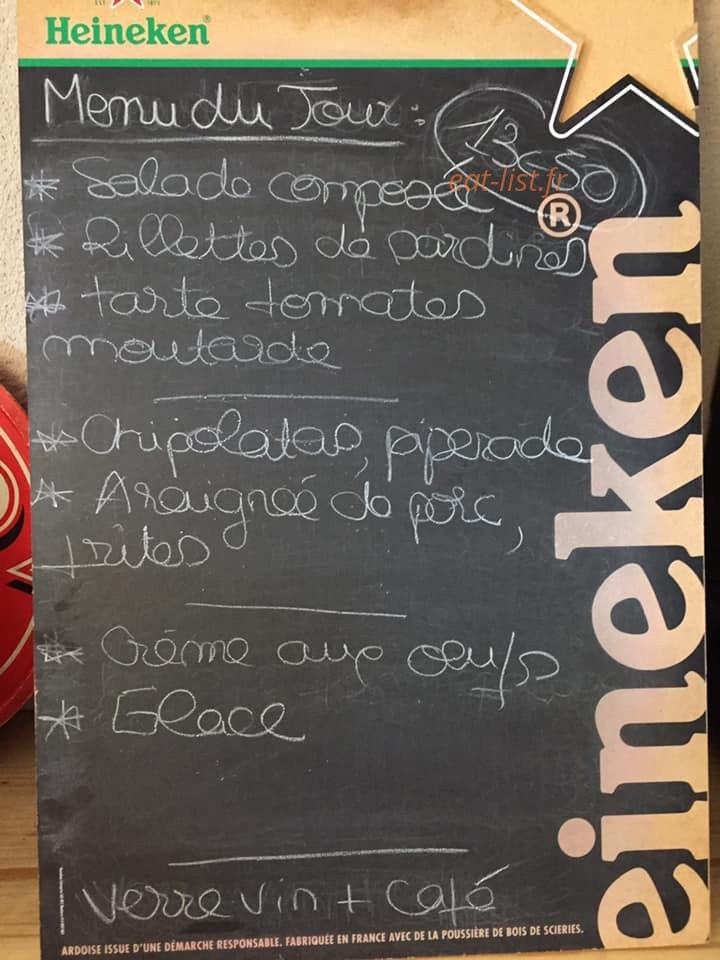 Heineken®
Menu du Jour : 13€50
eat-list.fr
* Salade composée
* Rillettes de sardines
* tarte tomates
moutarde
* Chipolatas, piperade
* Araignée de porc,
frites
* Crème aux oeufs
* Glace
verre vin + Café
eineken®
ARDOISE ISSUE D'UNE DÉMARCHE RESPONSABLE. FABRIQUÉE EN FRANCE AVEC DE LA POUSSIÈRE DE BOIS DE SCIERIES.